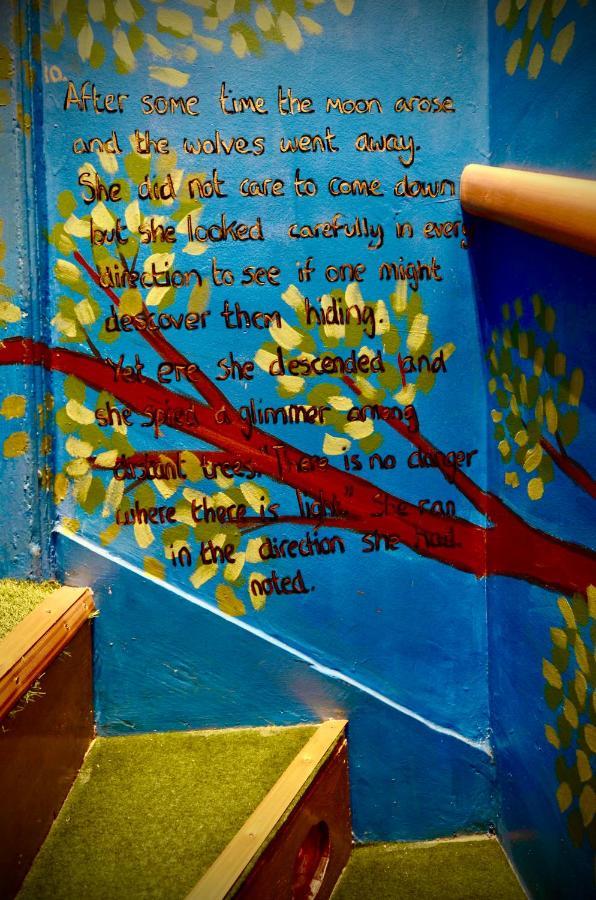 10.
After some time the moon arose
and the wolves went away.
She did not care to come down
but she looked carefully in every
direction to see if one might
descover them hiding.
Yet ere she descended and
she spied a glimmer among
distant trees. "There is no danger
where there is light." She ran
in the direction she had
noted.